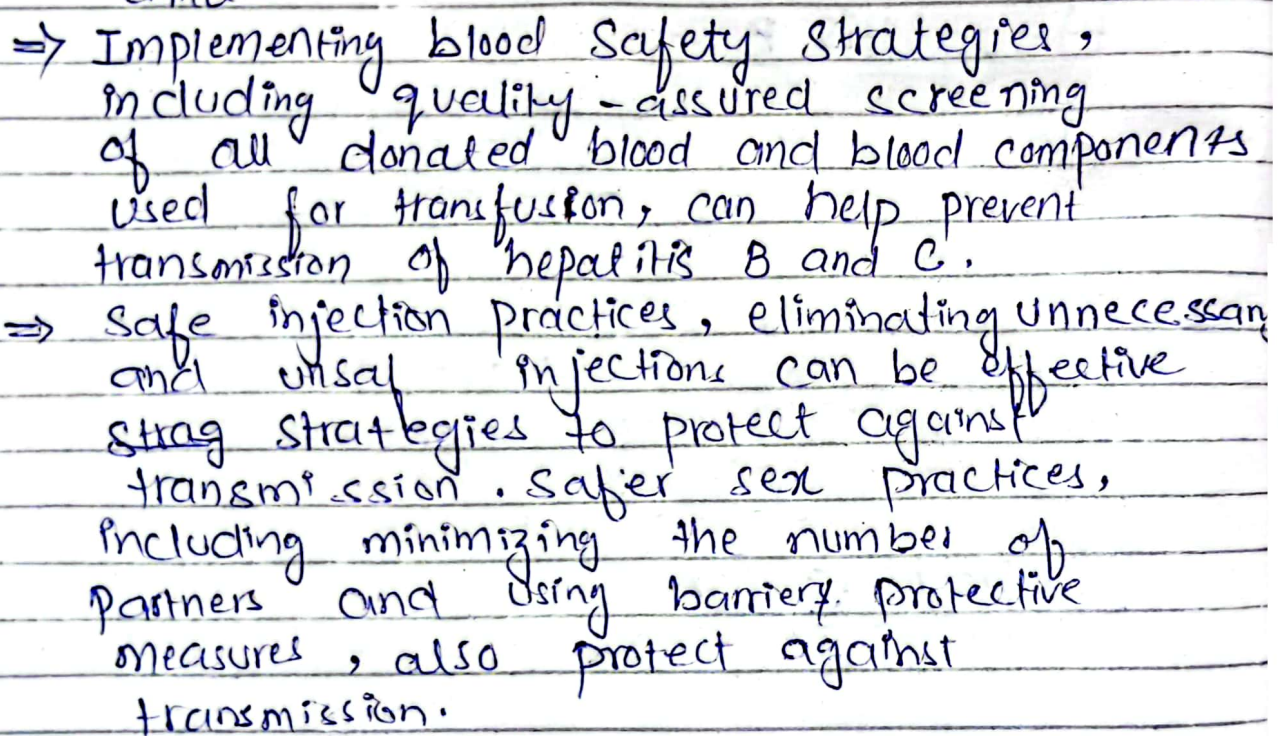 ⇒ Implementing blood safety strategies,
including quality-assured screening
of all donated blood and blood components
used for transfusion, can help prevent
transmission of hepatitis B and C.
⇒ Safe injection practices, eliminating unnecessary
and unsaf injections can be effective
strag strategies to protect against
transmission. Safer sex practices,
including minimizing the number of
partners and using barriery protective
measures, also protect against
transmission.